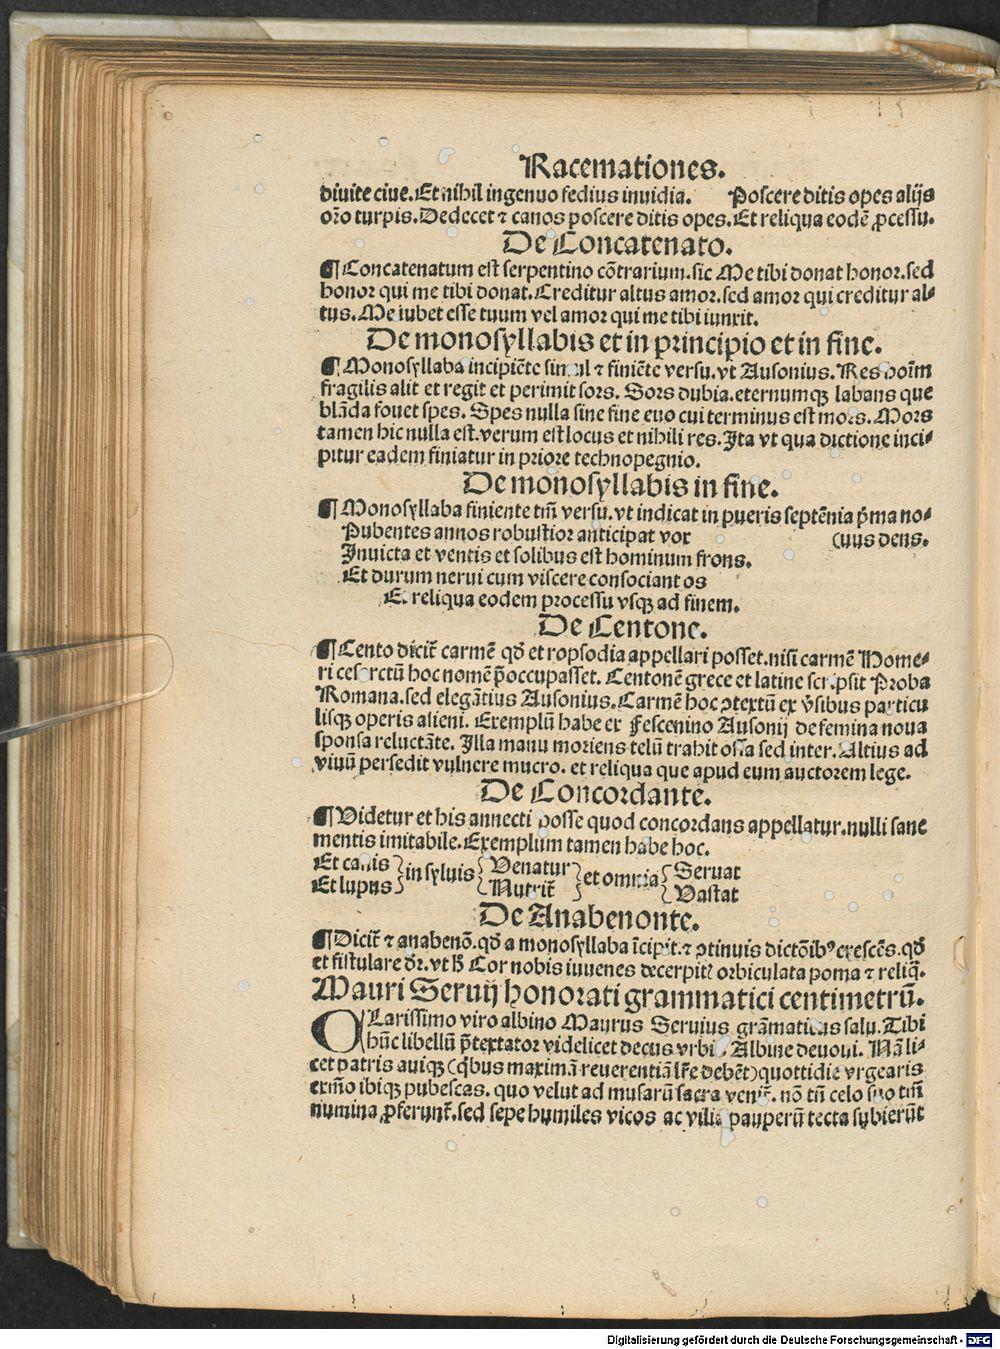 Racemationes.
diuite ciue. Et nihil ingenuo fedius inuidia. Poscere ditis opes alijs
oīo turpis. Dedecet ⁊ canos poscere ditis opes. Et reliqua eodē ꝓcessu.
De Concatenato.
¶ Concatenatum est serpentino cōtrarium. sic Me tibi donat honor. sed
honor qui me tibi donat. Creditur altus amor. sed amor qui creditur al⸗
tus. Me iubet esse tuum vel amor qui me tibi iunxit.
De monosyllabis et in principio et in fine.
¶ Monosyllaba incipiēte simul ⁊ finiēte versu. vt Ausonius. Res hoīm
fragilis alit et regit et perimit sors. Sors dubia. eternumqꝫ labans que
blāda fouet spes. Spes nulla sine fine euo cui terminus est mors. Mors
tamen hic nulla est. verum est locus et nihili res. Ita vt qua dictione inci⸗
pitur eadem finiatur in priore technopegnio.
De monosyllabis in fine.
¶ Monosyllaba finiente tm̄ versu. vt indicat in pueris septēnia p̄ma no⸗
Pubentes annos robustior anticipat vox (uus dens.
Inuicta et ventis et solibus est hominum frons.
Et durum nerui cum viscere consociant os
Et reliqua eodem processu vsqꝫ ad finem.
De Centone.
¶ Cento dicit̄ carmē qd̄ et ropsodia appellari posset. nisi carmē Home⸗
ri cesorctū hoc nomē p̄occupasset. Centonē grece et latine scripsit Proba
Romana. sed elegātius Ausonius. Carmē hoc ↄtextū ex v̄sibus particu
lisqꝫ operis alieni. Exemplū habe ex Fescenino Ausonij de femina noua
sponsa reluctāte. Illa manu moriens telū trahit ossa sed inter. Altius ad
viuū persedit vulnere mucro. et reliqua que apud eum auctorem lege.
De Concordante.
¶ Videtur et his annecti posse quod concordans appellatur. nulli sane
mentis imitabile. Exemplum tamen habe hoc.
Et canis } in syluis { Venatur } et omnia { Seruat
Et lupus } { Nutrit̄ } { Vastat
De Anabenonte.
¶ Dicit̄ ⁊ anabenō. qd̄ a monosyllaba īcipit. ⁊ ↄtinuis dictōibꝰ crescēs. qd̄
et fistulare dr̄. vt h̄ Cor nobis iuuenes decerpit̄ orbiculata poma ⁊ reliq̄.
Mauri Seruij honorati grammatici centimetrū.
CLarissimo viro albino Maurus Seruius grāmaticus salu. Tibi
hūc libellū p̄textator videlicet decus vrbis Albine deuoui. Nā li⸗
cet patris auiqꝫ (q̄bus maximā reuerentiā lr̄e debēt) quottidie vrgearis
exīmo ibiqꝫ pubescas. quo velut ad musarū sacra venit̄. nō tn̄ celo suo tm̄
numina ꝓferunt̄. sed sepe humiles vicos ac vilia pauperū tecta subierūt
Digitalisierung gefördert durch die Deutsche Forschungsgemeinschaft - DFG